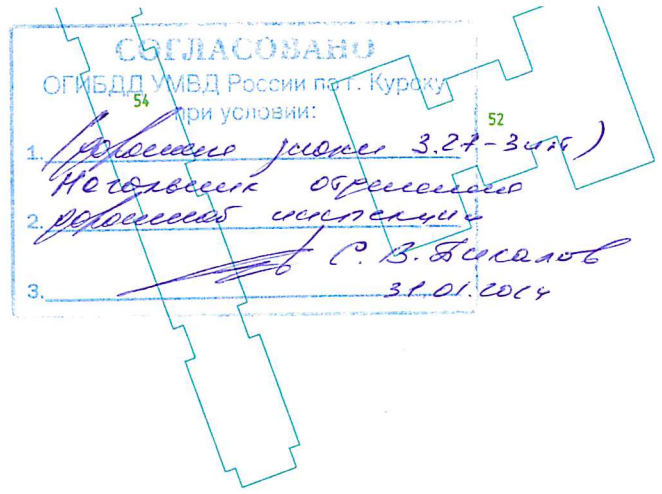 СОГЛАСОВАНО
ОГИБДД УМВД России по г. Курску
54
при условии:
52
1. (дорожные знаки 3.27-3шт)
Начальник отделения
2. дорожной инспекции
С. В. Бикалов
3. 31.01.2014